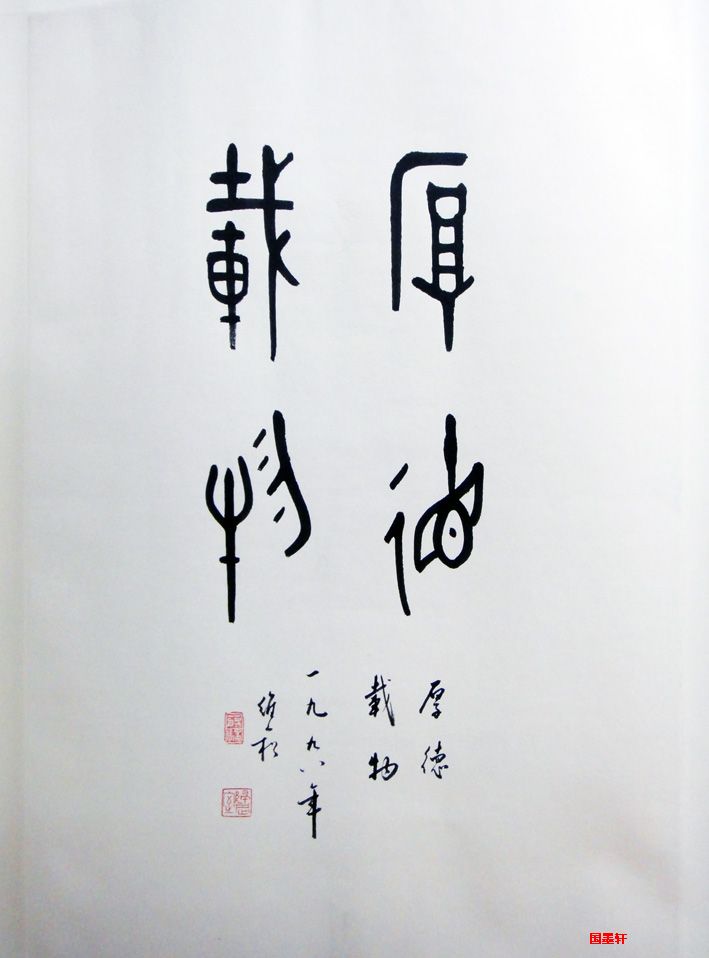 厚德
載物
厚德
載物
一九九八年
国墨轩